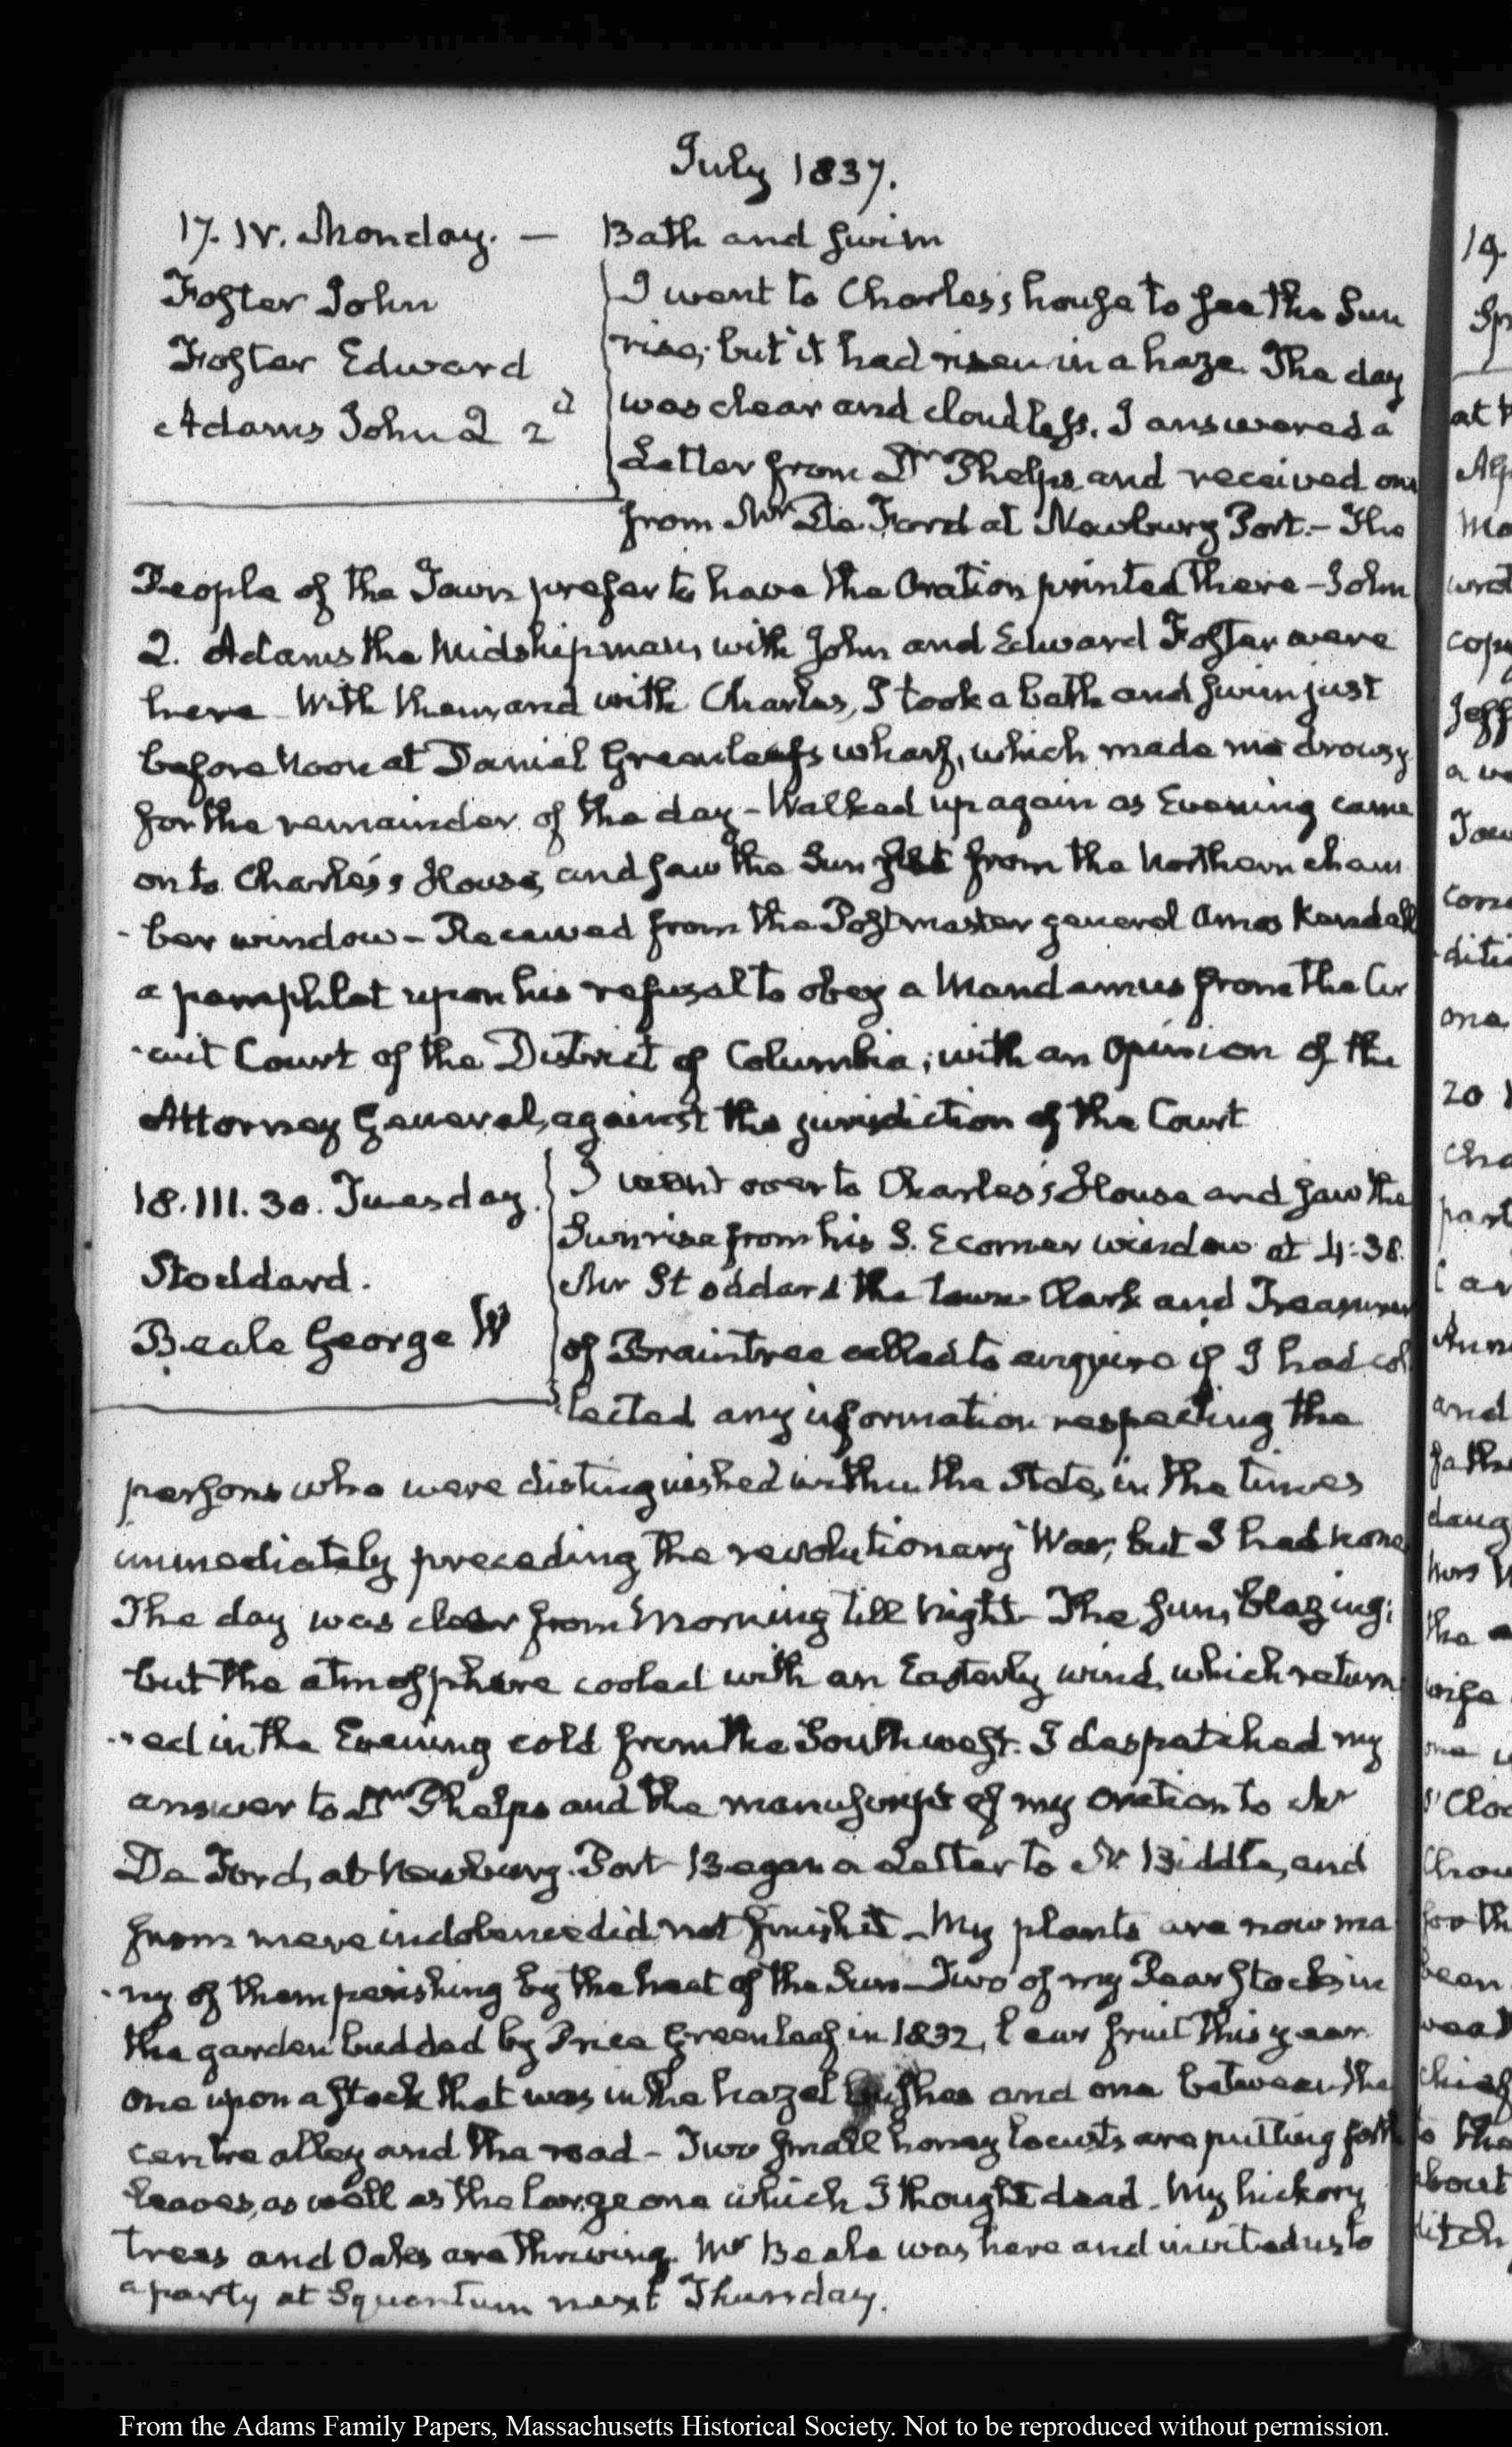 July 1837.
17. IV. Monday. — Bath and swim
Foster John
Foster Edward
Adams John Q 2d
I went to Charles's house to see the Sun
rise; but it had risen in a haze. The day
was clear and cloudless. I answered a
Letter from Dr Phelps and received one
from Mr De Ford at Newbury Port.— The
People of the Town prefer to have the Oration printed there – John
Q. Adams the Midshipman, with John and Edward Foster were
here – With them, and with Charles, I took a bath and swim just
before Noon at Daniel Greenleafs wharf, which made me drowsy
for the remainder of the day – Walked up again as Evening came
on to Charles's House, and saw the Sun set from the Northern cham
-ber window – Received from the Postmaster general Amos Kendall
a pamphlet upon his refusal to obey a Mandamus from the Cir
-cuit Court of the District of Columbia; with an Opinion of the
Attorney General, against the jurisdiction of the Court
18. III. 30. Tuesday.
Stoddard.
Beale George W
I went over to Charles's House and saw the
Sunrise from his S. E corner window at 4:38.
Mr Stoddard the town Clerk and Treasurer
of Braintree called to enquire if I had col
-lected any information respecting the
persons who were distinguished within the State, in the times
immediately preceding the revolutionary War; but I had none
The day was clear from Morning till Night – The Sun, blazing;
but the atmosphere cooled with an Easterly wind, which return
-ed in the Evening cold from the Southwest. I despatched my
answer to Dr Phelps and the manuscript of my oration to Mr
De Ford, at Newbury-Port – Began a Letter to N. Biddle, and
from mere indolence did not finish it – My plants are now ma
-ny of them perishing by the heat of the Sun – Two of my Pear stocks in
the garden budded by Price Greenleaf in 1832, bear fruit this year
one upon a stock that was in the hazel bushes and one between the
centre alley and the road – Two small honey locusts are putting forth
leaves, as well as the large one which I thought dead. My hickory
trees and Oaks are thriving. Mr Beale was here and invited us to
a party at Squantum next Thursday.
From the Adams Family Papers, Massachusetts Historical Society. Not to be reproduced without permission.